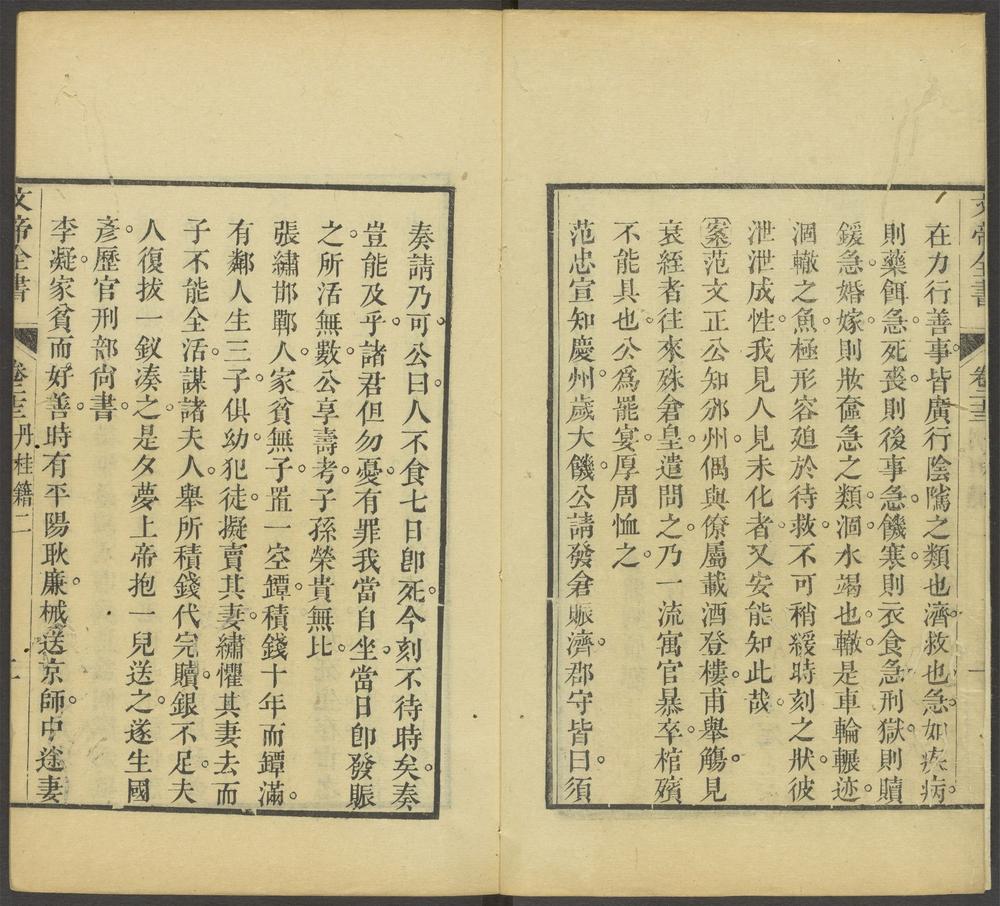 文帝全書
卷二十三
一
在力行善事皆廣行陰隲之類也濟救也急如疾病
則藥餌急死喪則後事急饑寒則衣食急刑獄則贖
鍰急婚嫁則妝奩急之類涸水竭也轍是車輪輾迹
涸轍之魚極形容廹於待救不可稍緩時刻之狀彼
泄泄成性我見人見未化者又安能知此哉
案范文正公知邠州偶與僚屬載酒登樓甫舉觴見
衰絰者往來殊倉皇遣問之乃一流寓官暴卒棺殯
不能具也公爲罷宴厚周恤之
范忠宣知慶州歲大饑公請發倉賑濟郡守皆曰須
奏請乃可公曰人不食七日卽死今刻不待時矣奏
豈能及乎諸君但勿憂有罪我當自坐當日卽發賑
之所活無數公享壽考子孫榮貴無比
張繡邯鄲人家貧無子置一空鐔積錢十年而鐔滿
有鄰人生三子俱幼犯徒擬賣其妻繡懼其妻去而
子不能全活謀諸夫人舉所積錢代完贖銀不足夫
人復拔一釵凑之是夕夢上帝抱一兒送之遂生國
彥歷官刑部尙書
李凝家貧而好善時有平陽耿廉械送京師中途妻
文帝全書
卷二十三丹桂籍二
二